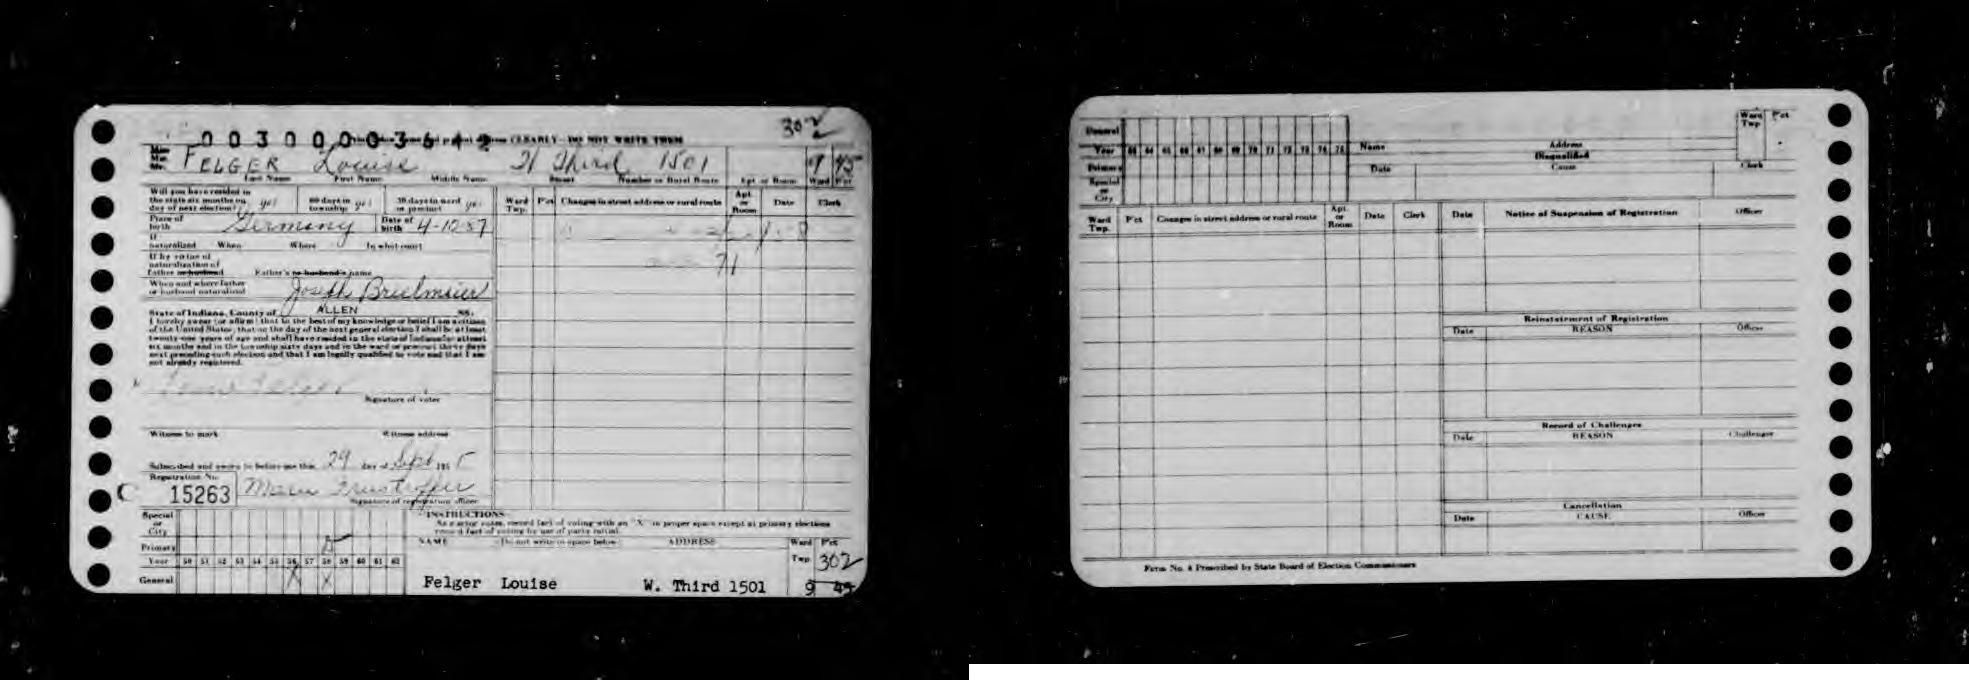 302
003000003642 CLEARLY DO NOT WRITE THEM
FELGER Louise W Third 1501 9 45
Last Name First Name Middle Name Street Number or Rural Route Apt or Room Ward Pct
Will you have resided in
the state six months on
day of next election? yes 60 days in township yes 30 days in ward or precinct yes
Place of birth Germany Date of birth 4-10-87
If naturalized When Where In what court
If by virtue of
naturalization of
father or husband Father's or husband's name
When and where father
or husband naturalized Joseph Brielmaier
State of Indiana, County of ALLEN SS:
I hereby swear (or affirm) that to the best of my knowledge or belief I am a citizen
of the United States, that on the day of the next general election I shall be at least
twenty-one years of age and shall have resided in the state of Indiana for at least
six months and in the township sixty days and in the ward or precinct thirty days
next preceding such election and that I am legally qualified to vote and that I am
not already registered.
Felger
Signature of voter
Witness to mark Witness address
Subscribed and sworn to before me this 29 day of Sept 195
Registration No.
C 15263
Signature of registration officer
Ward Twp. Pct Changes in street address or rural route Apt. or Room Date Clerk
71
Special
or
City
Primary
Year 50 51 52 53 54 55 56 57 58 59 60 61 62
General X X
INSTRUCTIONS
As a voter votes, record fact of voting with an "X" in proper space except at primary elections
record fact of voting by use of party initial.
NAME (Do not write in space below) ADDRESS Ward Pct
Twp. 302
Felger Louise W. Third 1501 9 45
General
Year 63 64 65 66 67 68 69 70 71 72 73 74 75
Primary
Special
or
City
Name Address
Ward Twp Pct
Disqualified
Date Cause Clerk
Ward Twp. Pct Changes in street address or rural route Apt. or Room Date Clerk
Date Notice of Suspension of Registration Officer
Reinstatement of Registration
Date REASON Officer
Record of Challenges
Date REASON Challenger
Cancellation
Date CAUSE Officer
Form No. 4 Prescribed by State Board of Election Commissioners